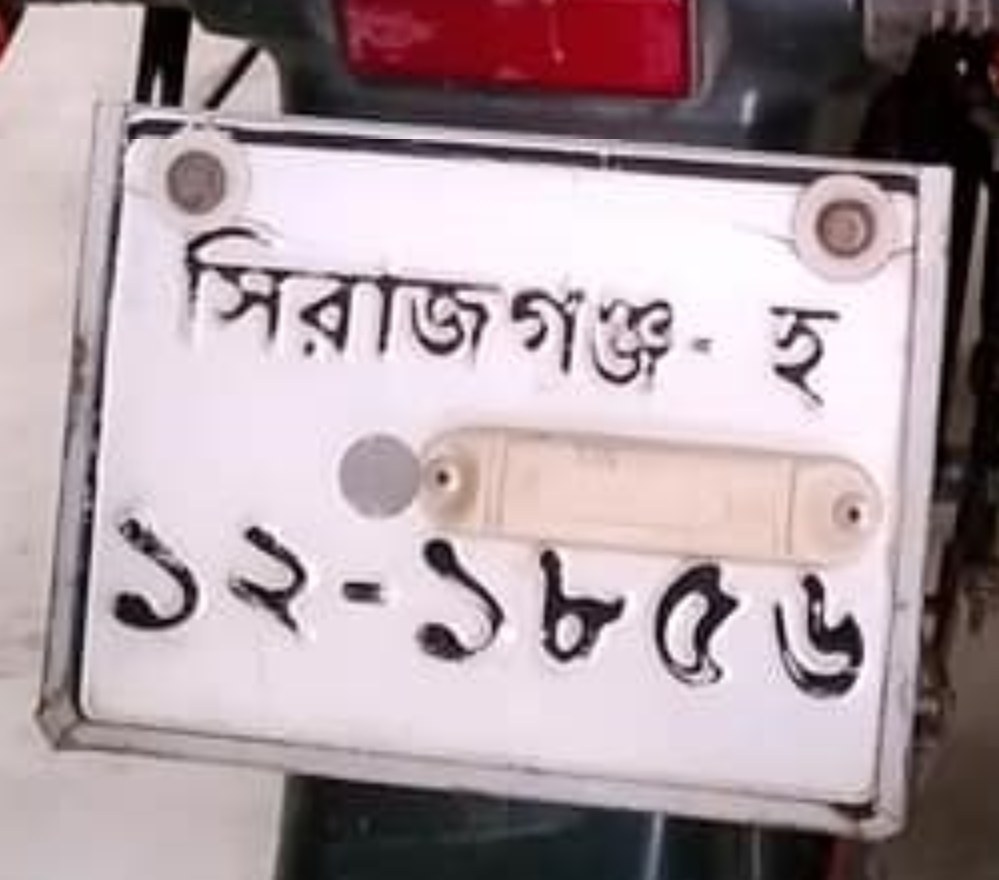 সিরাজগঞ্জ- হ
১২-১৮৫৬